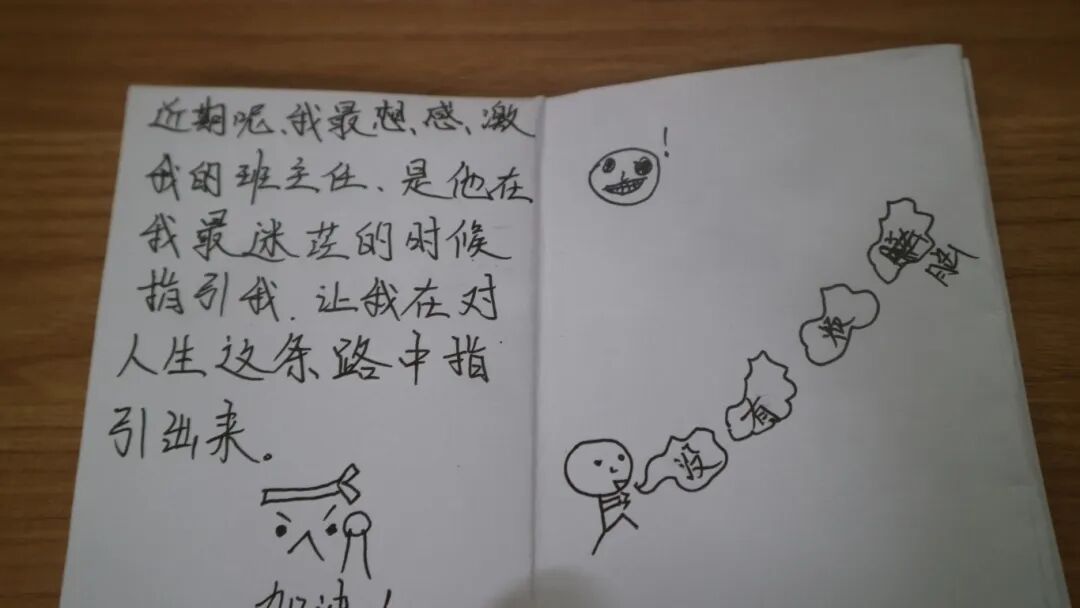 近期呢、我最想、感、激
我的班主任、是他在
我最迷茫的时候
指引我、让我在对
人生这条路中指
引出来。
加油！
！
没
有